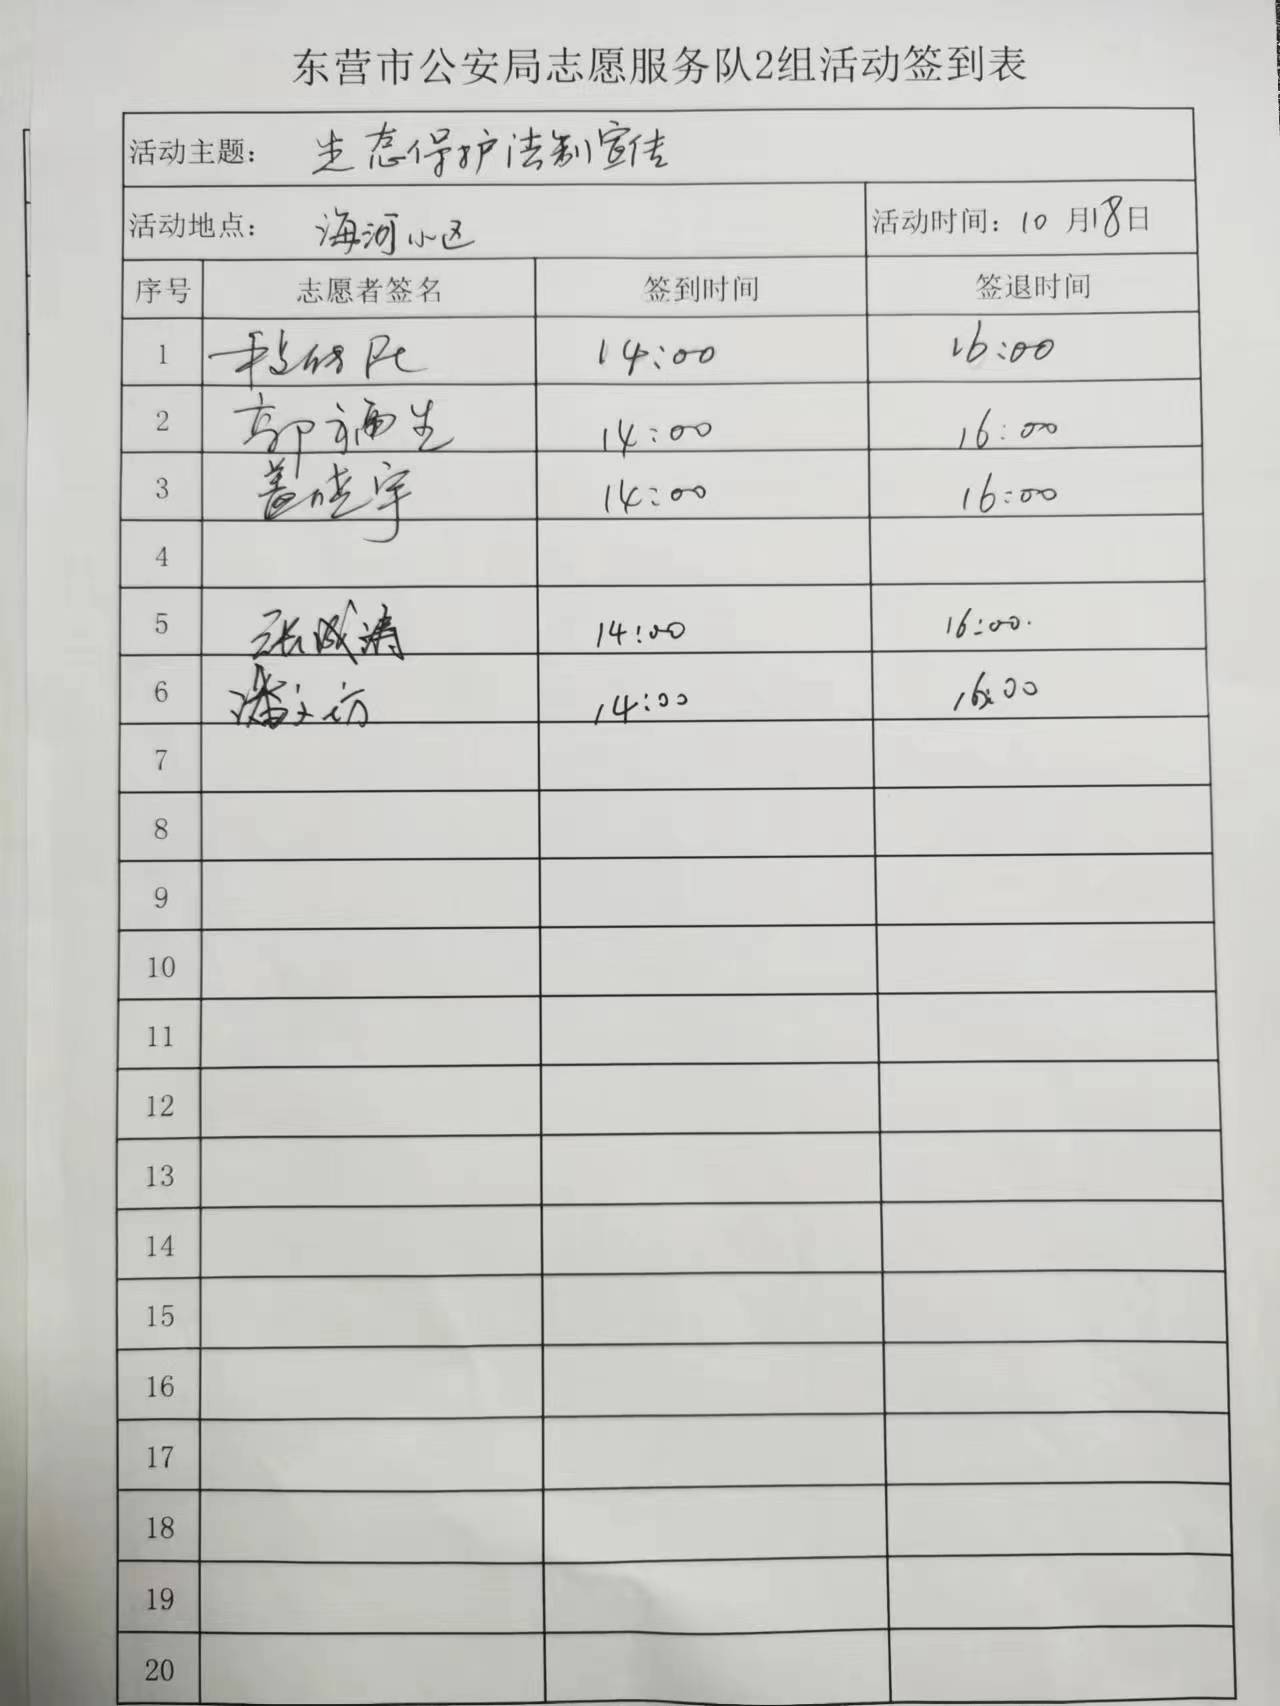 东营市公安局志愿服务队2组活动签到表
活动主题: 生态保护法制宣传
活动地点: 海河小区 活动时间: 10 月18日
序号 志愿者签名 签到时间 签退时间
1 14:00 16:00
2 郭福生 14:00 16:00
3 盖晓宇 14:00 16:00
4
5 张成涛 14:00 16:00.
6 潘文访 14:00 16:00
7
8
9
10
11
12
13
14
15
16
17
18
19
20